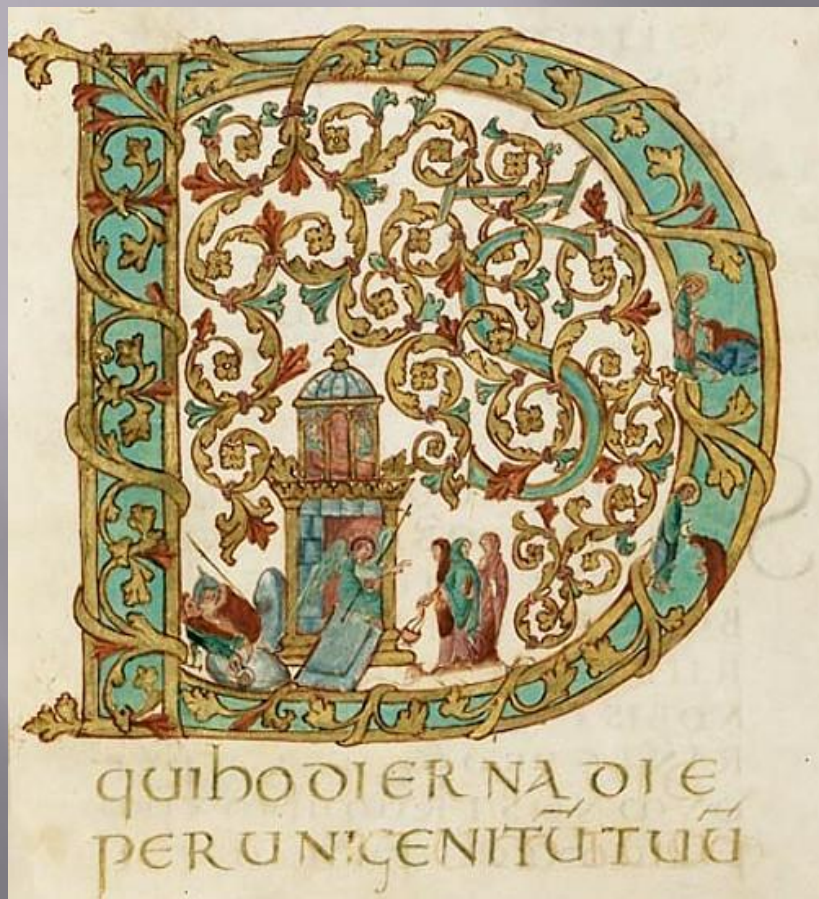 DS̄
quihodierna die
perunigenitū tuū